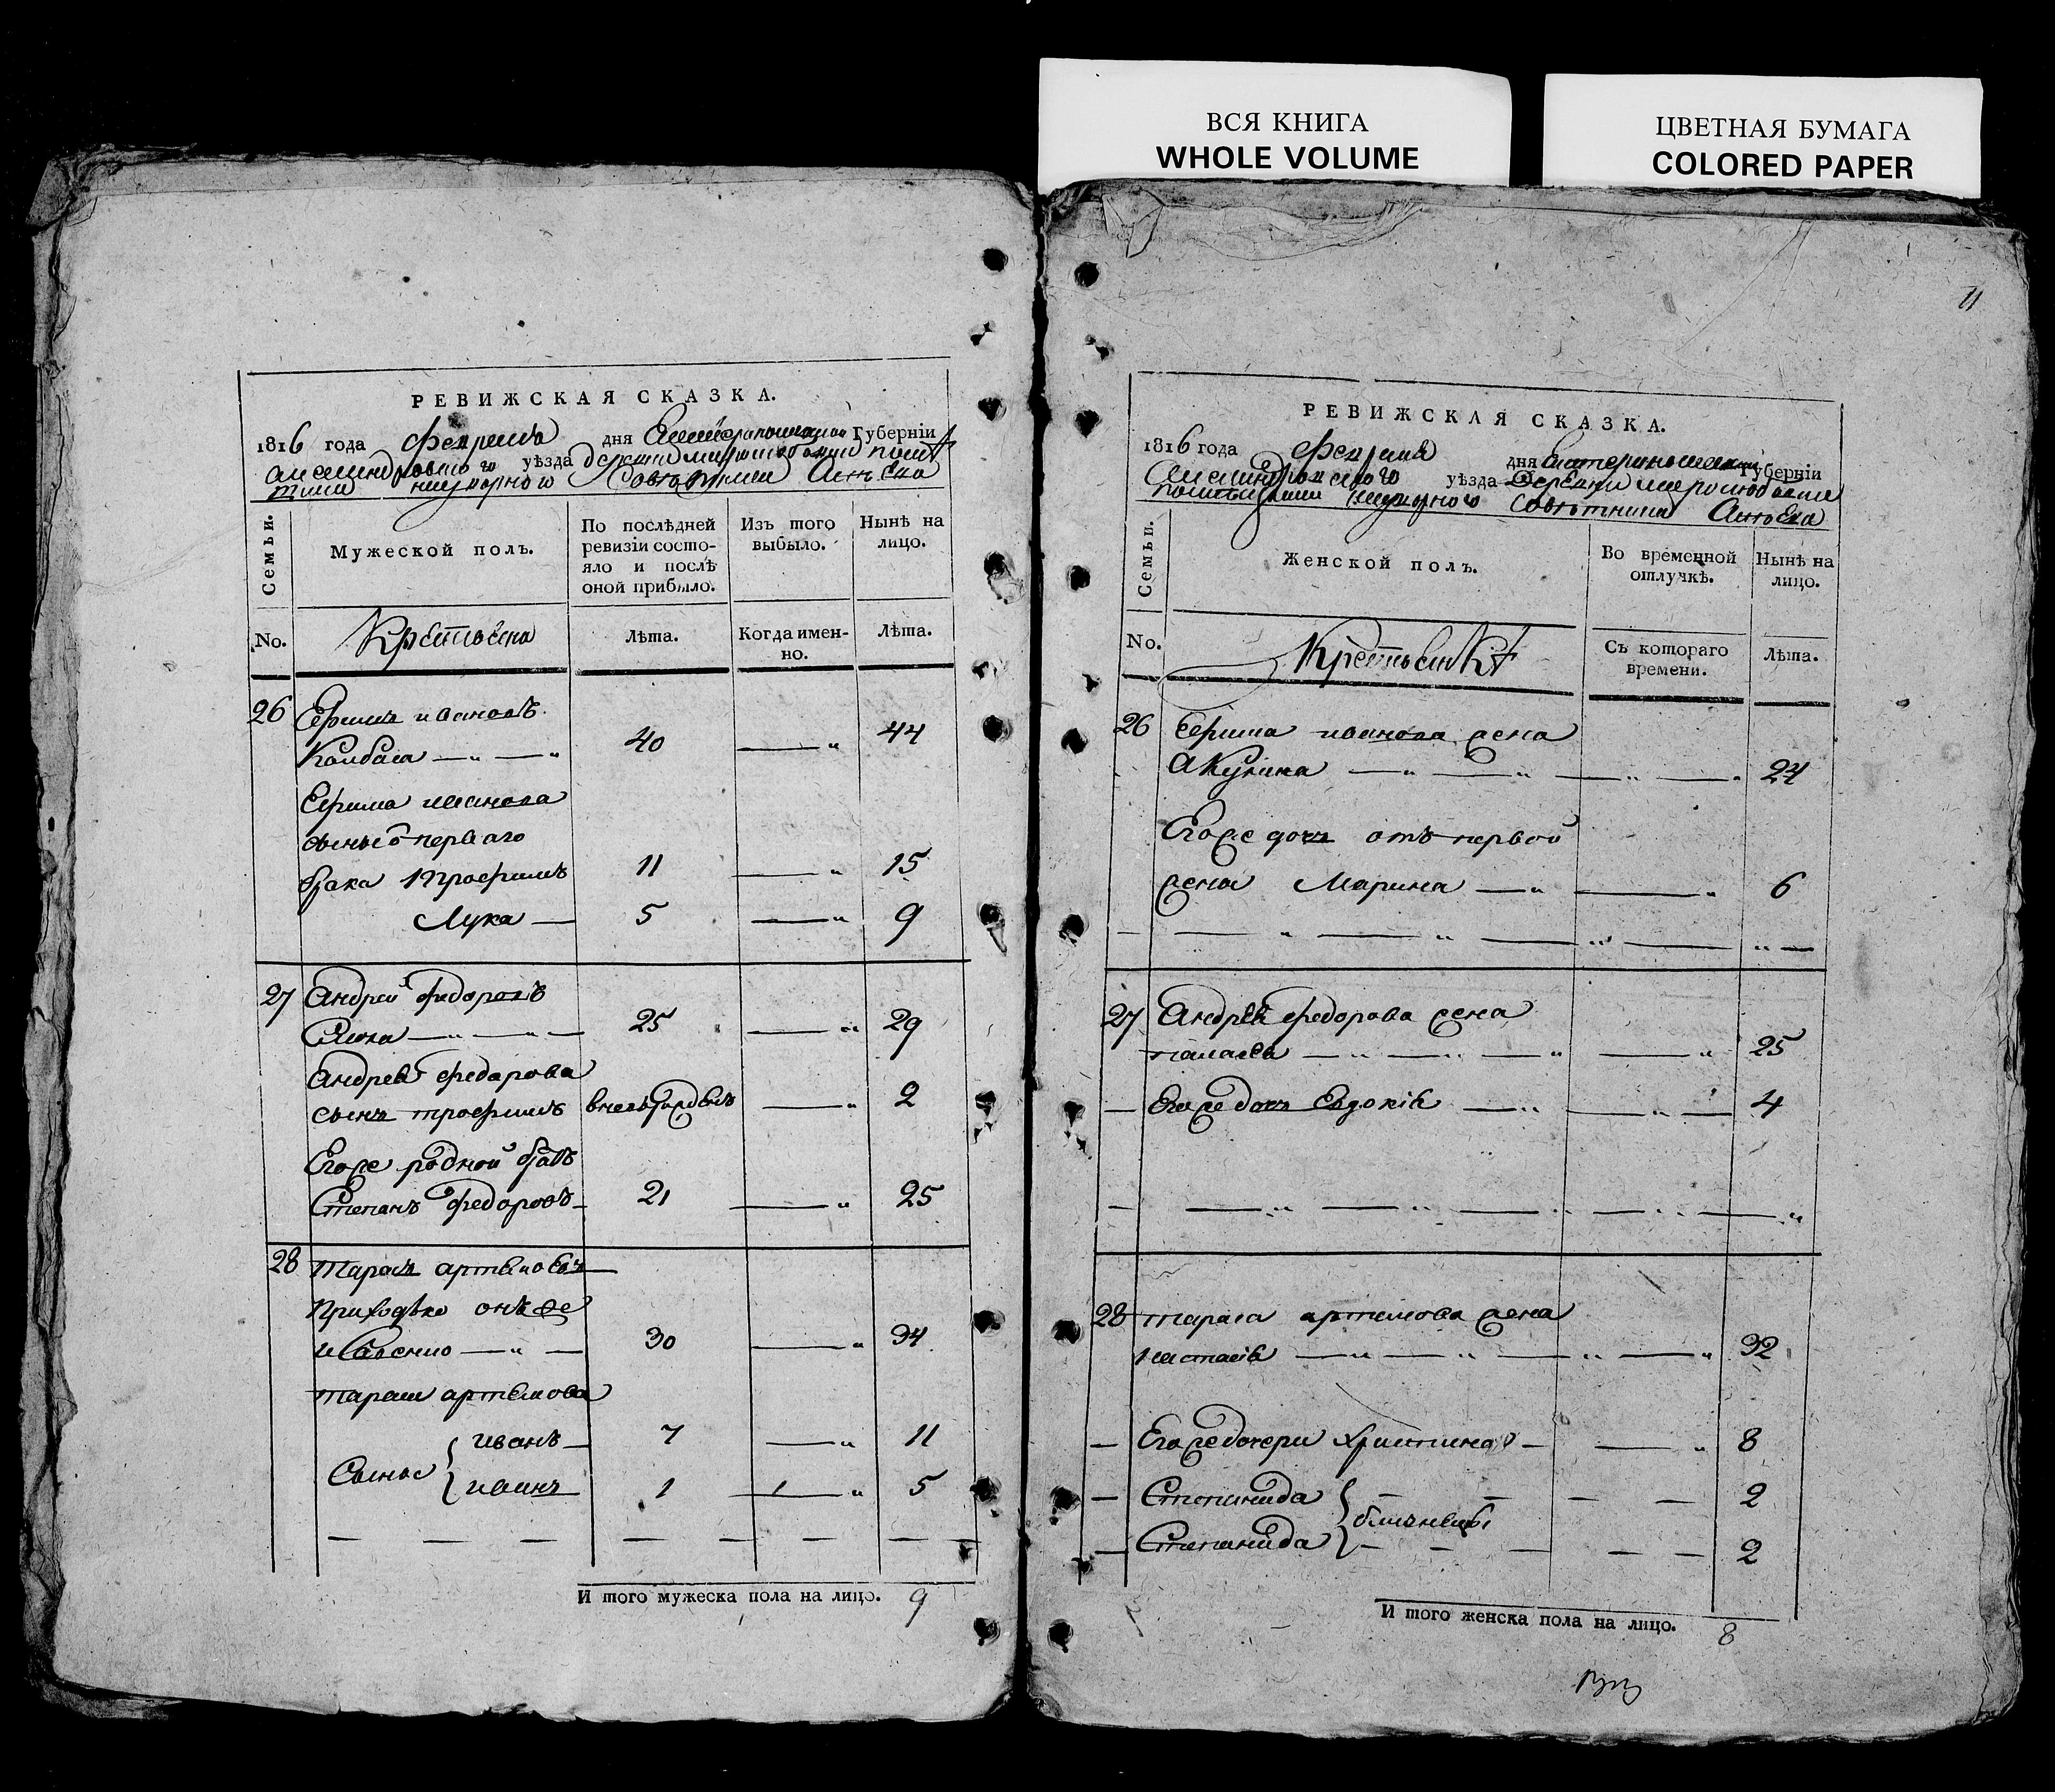 ВСЯ КНИГА
WHOLE VOLUME
ЦВЕТНАЯ БУМАГА
COLORED PAPER
РЕВИЖСКАЯ СКАЗКА.
1816 года февраля дня Екатеринославской Губерніи
уѣзда
надворного Советника
Семьи.
Мужеской полъ.
По послѣдней
ревизіи состо-
яло и послѣ
оной прибыло.
Изъ того
выбыло.
Нынѣ на
лицо.
No.
Крестьяна
лѣта.
Когда имен-
но.
лѣта.
26 Ефимъ ивановъ
Колбаса 40 44
Ефима иванова
сынь о перваго
брака Трофимъ 11 15
Лука 5 9
27 Андрей федоровъ
25 29
Андрея федорова
сынъ трофимъ 2
Егоже родной братъ
Степанъ федоровъ 21 25
28 Тарасъ артемовъ
Приходько онъ же
30 34
тараса артемова
Сыны { иванъ 7 11
иванъ 1 5
И того мужеска пола на лицо. 9
11
РЕВИЖСКАЯ СКАЗКА.
1816 года февраля дня Екатеринославской Губерніи
Александровского уѣзда Деревни
надворного Советника
Семьи.
Женской полъ.
Во временной
отлучкѣ.
Нынѣ на
лицо.
No.
Крестьянки
Съ котораго
времени.
лѣта.
26 Ефима иванова жена
Акулина 24
Егоже дочь отъ первой
жены Марина 6
27 Андрея федорова жена
25
Егоже дочь Евдокія 4
28 тараса артемова жена
настасія 32
Егоже дочери христина 8
Степанида } 2
близнецы
Степанида } 2
И того женска пола на лицо. 8